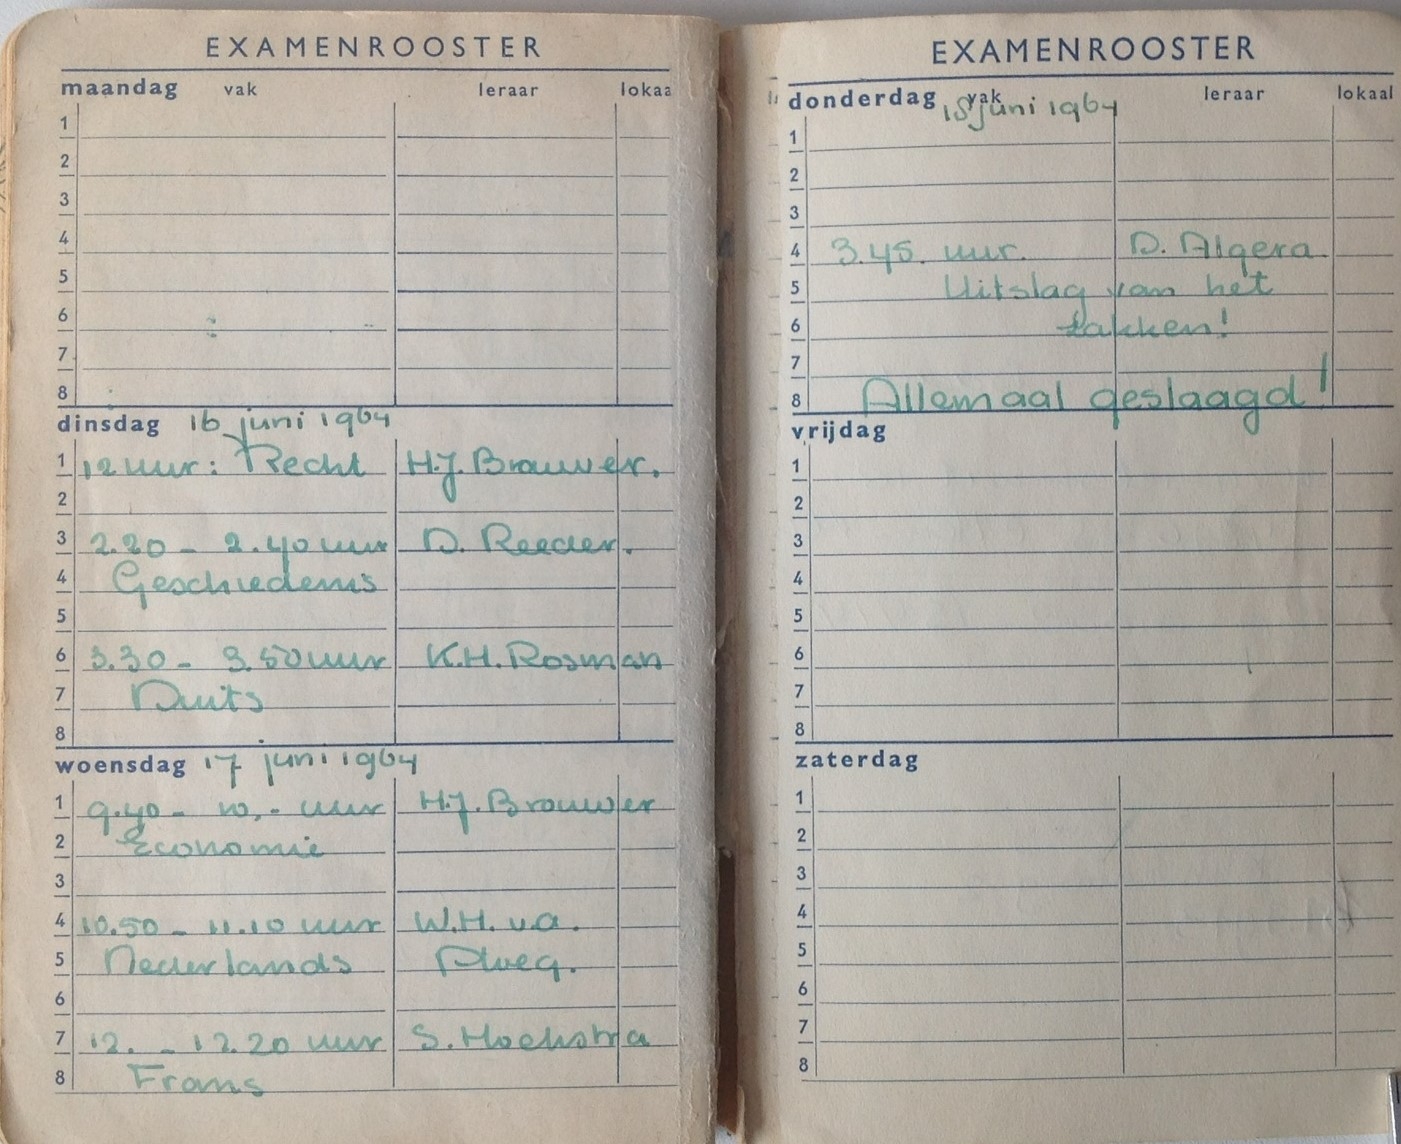 EXAMENROOSTER
maandag vak leraar lokaa
1
2
3
4
5
6
7
8
dinsdag 16 juni 1964
1 12 uur: Recht H.J. Brouwer.
2
3 2.20 - 2.40 uur D. Reeder.
4 Geschiedenis
5
6 3.30 - 3.50 uur K.H. Rosman
7 Duits
8
woensdag 17 juni 1964
1 9.40 - 10,- uur H.J. Brouwer
2 Economie
3
4 10.50 - 11.10 uur W.H. v.d.
5 Nederlands Ploeg.
6
7 12. - 12.20 uur S. Hoekstra
8 Frans
EXAMENROOSTER
donderdag vak leraar lokaal
18 juni 1964
1
2
3
4 3.45. uur. D. Algera
5 Uitslag van het
6 zakken!
7
8 Allemaal geslaagd!
vrijdag
1
2
3
4
5
6
7
8
zaterdag
1
2
3
4
5
6
7
8